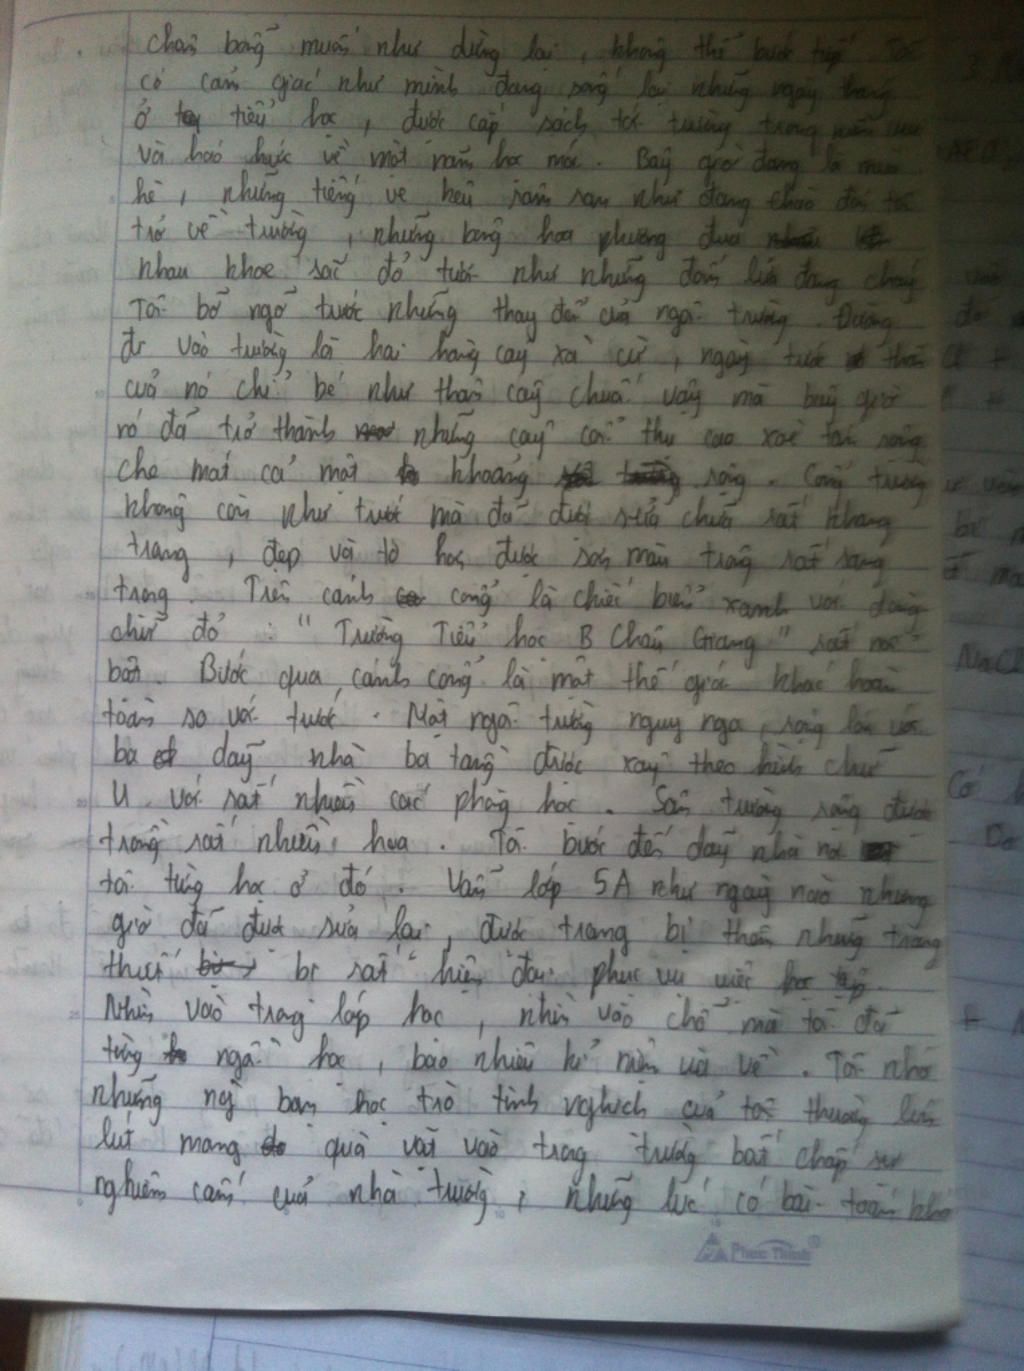 chân bỗng muốn như dừng lại, không thể bước tiếp. Tôi
có cảm giác như mình đang sống lại những ngày tháng
ở tiểu học, được cắp sách tới trường trong
và háo hức về một năm học mới. Bây giờ đang là mùa
hè, những tiếng ve kêu râm ran như đang chào đón tôi
trở về trường, những bông hoa phượng đua
nhau khoe sắc đỏ tươi như những đốm lửa đang cháy
Tôi bỡ ngỡ trước những thay đổi của ngôi trường. Đường
đi vào trường là hai hàng cây xà cừ, ngày trước thân
của nó chỉ bé như thân cây chuối vậy mà bây giờ
nó đã trở thành những cây cổ thụ cao xoè tán rộng
che mát cả một khoảng rộng. Cổng trường
không còn như trước mà đã được sửa chữa rất khang
trang, đẹp và to hơn, được sơn màu trông rất sang
trọng. Trên cánh cổng là chiếc biển xanh với dòng
chữ đỏ: "Trường Tiểu học B Châu Giang" rất nổi
bật. Bước qua cánh cổng là một thế giới khác hoàn
toàn so với trước. Một ngôi trường nguy nga, rộng lớn với
ba dãy nhà ba tầng được xây theo hình chữ
U với rất nhiều các phòng học. Sân trường rộng được
trồng rất nhiều hoa. Tôi bước đến dãy nhà nơi
tôi từng học ở đó. Vẫn lớp 5A như ngày nào nhưng
giờ đã được sửa lại, được trang bị thêm những trang
thiết bị rất hiện đại phục vụ việc học tập.
Nhìn vào trong lớp học, nhìn vào chỗ mà tôi đã
từng ngồi học, bao nhiêu kỉ niệm ùa về. Tôi nhớ
những người bạn học trò tinh nghịch của tôi thường lén
lút mang quà vặt vào trong trường bất chấp sự
nghiêm cấm của nhà trường, những lúc có bài toán khó
Phuc Thinh